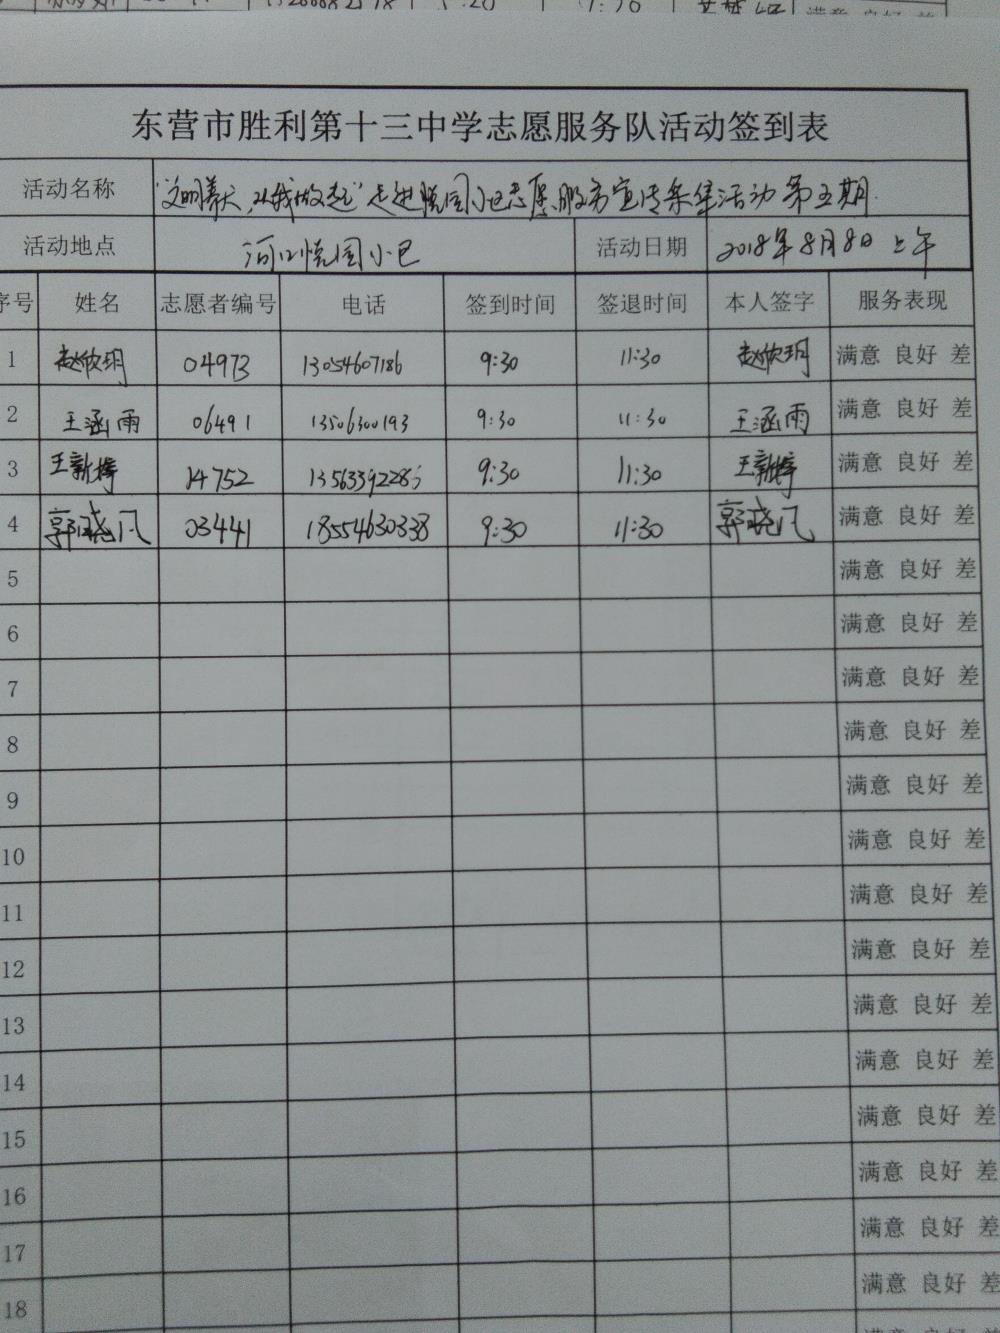 满意 良好 差
东营市胜利第十三中学志愿服务队活动签到表
活动名称 "文明养犬,从我做起"走进悦园小区志愿服务宣传采集活动第五期
活动地点 河口悦园小区 活动日期 2018年8月8日 上午
序号 姓名 志愿者编号 电话 签到时间 签退时间 本人签字 服务表现
1 赵欣玥 04973 13054607186 9:30 11:30 赵欣玥 满意 良好 差
2 王涵雨 06491 13506300193 9:30 11:30 王涵雨 满意 良好 差
3 王新婷 14752 13563392286 9:30 11:30 王新婷 满意 良好 差
4 郭晓凡 03441 18554630338 9:30 11:30 郭晓凡 满意 良好 差
5 满意 良好 差
6 满意 良好 差
7 满意 良好 差
8 满意 良好 差
9 满意 良好 差
10 满意 良好 差
11 满意 良好 差
12 满意 良好 差
13 满意 良好 差
14 满意 良好 差
15 满意 良好 差
16 满意 良好 差
17 满意 良好 差
18 满意 良好 差